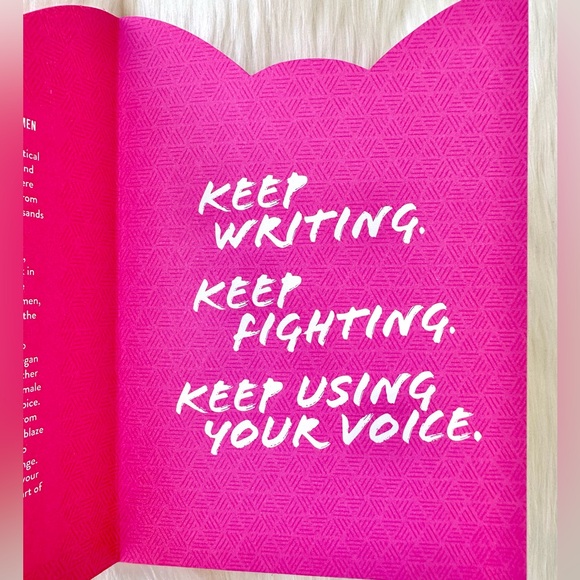 MEN
tical
nd
ere
rom
sands
t in
men,
the
gan
ther
male
oice.
om
blaze
nge.
your
rt of
KEEP
WRITING.
KEEP
FIGHTING.
KEEP USING
YOUR VOICE.